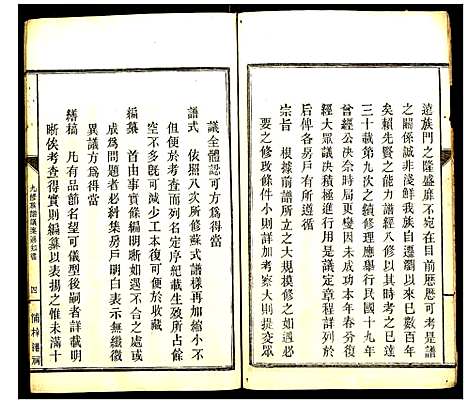 遠族門之隆盛靡不宛在目前歷歷可考是譜
之關係誠非淺鮮我族自遷瀏以來已數百年
矣賴先賢之能力譜經八修以其時考之已逹
三十載第九次之續修理應舉行民國十九年
曾經公决奈時局更變因未成功本年春分復
經大眾議决積極進行用是議定章程詳列於
后俾各房戶有所遵循
宗旨 根據前譜所立之大規模修之如意簡
要之修攻條件小則詳加考察大則提交眾
議全體認可方為得當
譜式 依照八次所修蘇式譜樣再加縮小不
但便於考查而列名定序紀載生歿所占餘
空不多既可減少工本復可便於收藏
編纂 首由事實條編明晰如有不合之處或
成為問題者必斜集房戶明白表示無纖微
異議方為得當
繕稿 凡有品節名望可儀型後嗣者詳載明
晰俟考查得實則編纂以表揚之惟未滿十
四